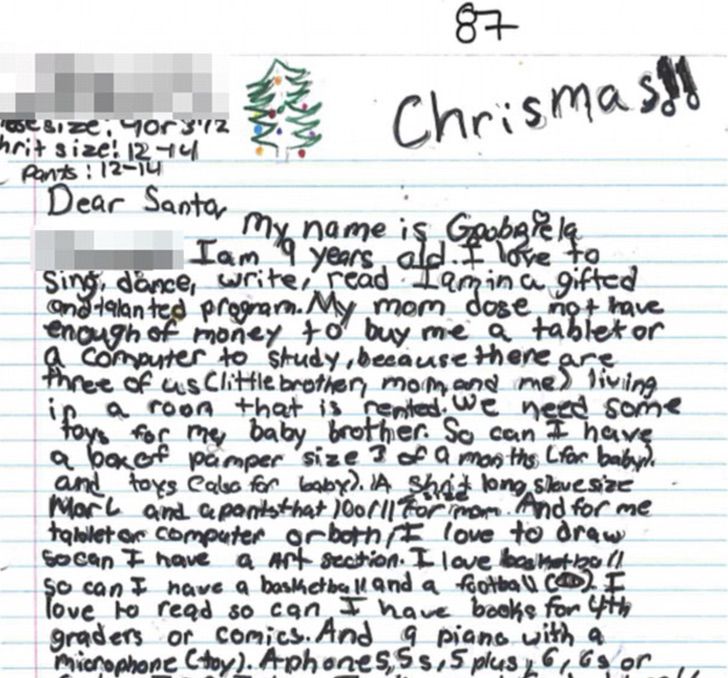 87
Chrismas!!
size: 4 or 3 1/2
hrit size: 12-14
Pants: 12-14
Dear Santa,
My name is
I am 9 years old. I love to
sing, dance, write, read I am in a gifted
and talanted program. My mom dose not have
enough of money to buy me a tablet or
a computer to study, because there are
three of us (little brother, mom, and me) living
in a roon that is rented. We need some
toys for my baby brother. So can I have
a box of pamper size 3 of 9 months (for baby).
and toys (also for baby). A shrit long slave size
M or L and a pants that size 10 or 11 for mom. And for me
tablet or computer or both! I love to draw
so can I have a Art section. I love basketball
so can I have a basketball and a football. I
love to read so can I have books for 4th
graders or comics. And a piano with a
microphone (toy). A phone 5, 5s, 5 plus, 6, 6s or